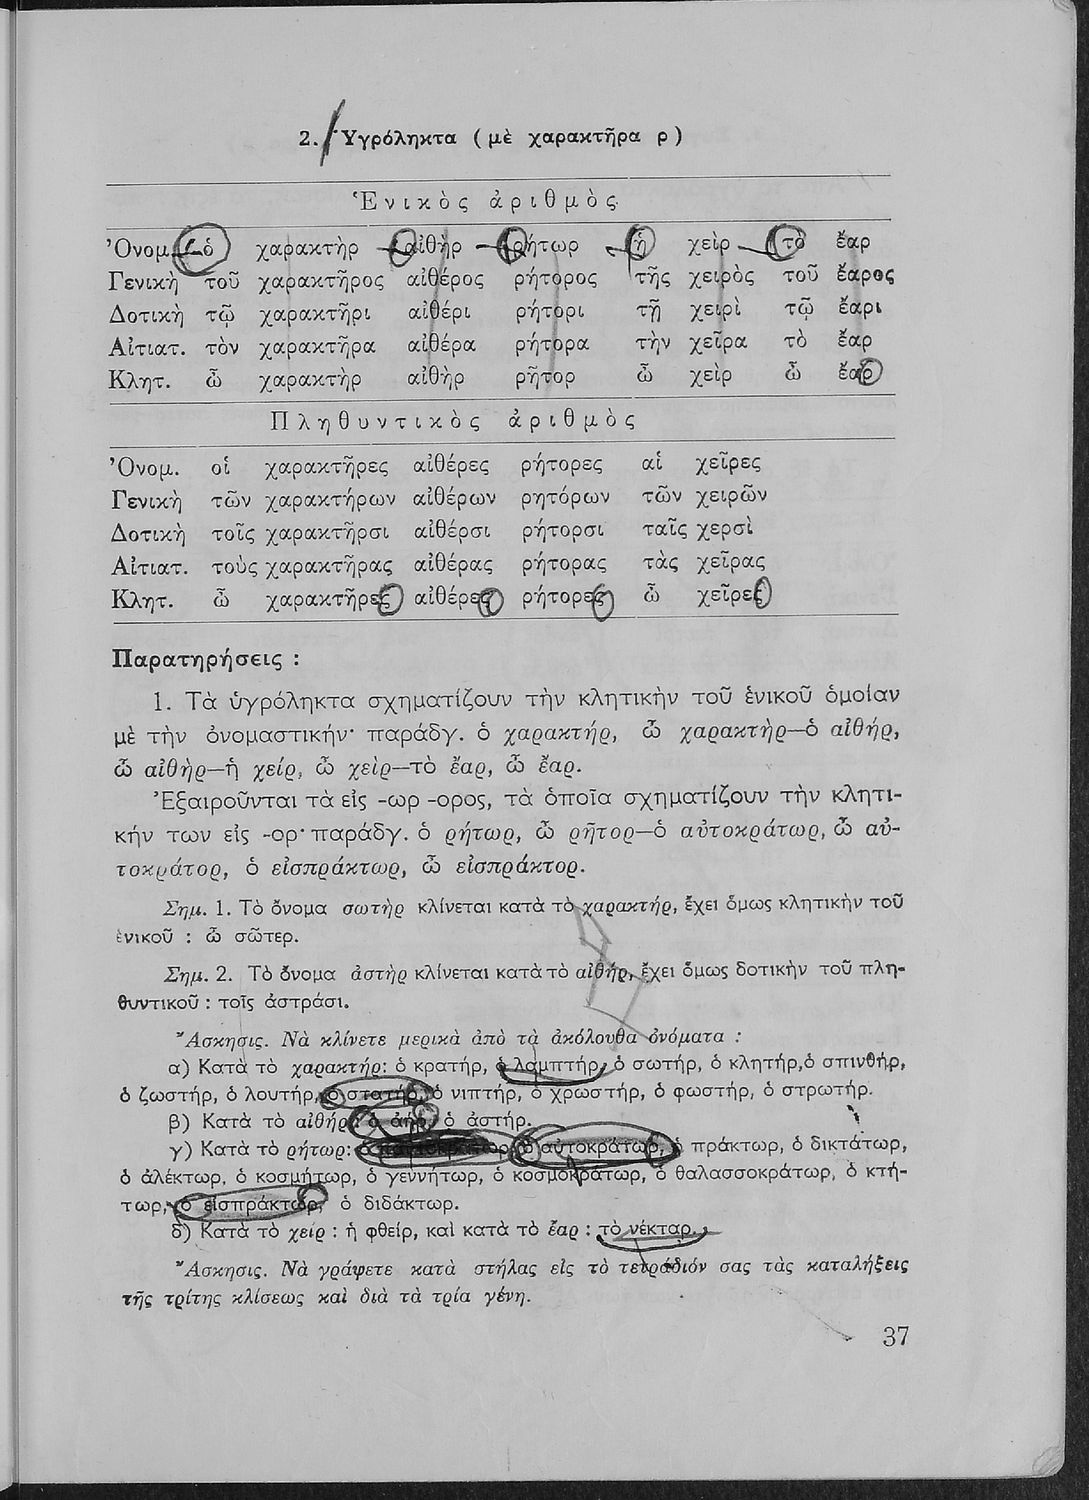 2. Ὑγρόληκτα ( μὲ χαρακτῆρα ρ )
Ἑνικὸς ἀριθμὸς
Ὀνομ. ὁ χαρακτὴρ αἰθὴρ ρήτωρ ἡ χεὶρ τὸ ἔαρ
Γενικὴ τοῦ χαρακτῆρος αἰθέρος ρήτορος τῆς χειρὸς τοῦ ἔαρος
Δοτικὴ τῷ χαρακτῆρι αἰθέρι ρήτορι τῇ χειρὶ τῷ ἔαρι
Αἰτιατ. τὸν χαρακτῆρα αἰθέρα ρήτορα τὴν χεῖρα τὸ ἔαρ
Κλητ. ὦ χαρακτὴρ αἰθὴρ ρῆτορ ὦ χεὶρ ὦ ἔαρ
Πληθυντικὸς ἀριθμὸς
Ὀνομ. οἱ χαρακτῆρες αἰθέρες ρήτορες αἱ χεῖρες
Γενικὴ τῶν χαρακτήρων αἰθέρων ρητόρων τῶν χειρῶν
Δοτικὴ τοῖς χαρακτῆρσι αἰθέρσι ρήτορσι ταῖς χερσὶ
Αἰτιατ. τοὺς χαρακτῆρας αἰθέρας ρήτορας τὰς χεῖρας
Κλητ. ὦ χαρακτῆρες αἰθέρες ρήτορες ὦ χεῖρες
Παρατηρήσεις :
1. Τὰ ὑγρόληκτα σχηματίζουν τὴν κλητικὴν τοῦ ἑνικοῦ ὁμοίαν
μὲ τὴν ὀνομαστικήν· παράδγ. ὁ χαρακτήρ, ὦ χαρακτὴρ—ὁ αἰθήρ,
ὦ αἰθὴρ—ἡ χείρ, ὦ χεὶρ—τὸ ἔαρ, ὦ ἔαρ.
Ἐξαιροῦνται τὰ εἰς -ωρ -ορος, τὰ ὁποῖα σχηματίζουν τὴν κλητι-
κήν των εἰς -ορ· παράδγ. ὁ ρήτωρ, ὦ ρῆτορ—ὁ αὐτοκράτωρ, ὦ αὐ-
τοκράτορ, ὁ εἰσπράκτωρ, ὦ εἰσπράκτορ.
Σημ. 1. Τὸ ὄνομα σωτὴρ κλίνεται κατὰ τὸ χαρακτήρ, ἔχει ὅμως κλητικὴν τοῦ
ἑνικοῦ : ὦ σῶτερ.
Σημ. 2. Τὸ ὄνομα ἀστὴρ κλίνεται κατὰ τὸ αἰθήρ, ἔχει ὅμως δοτικὴν τοῦ πλη-
θυντικοῦ : τοῖς ἀστράσι.
Ἄσκησις. Νὰ κλίνετε μερικὰ ἀπὸ τὰ ἀκόλουθα ὀνόματα :
α) Κατὰ τὸ χαρακτήρ: ὁ κρατήρ, ὁ λαμπτήρ, ὁ σωτήρ, ὁ κλητήρ, ὁ σπινθήρ,
ὁ ζωστήρ, ὁ λουτήρ, ὁ στατήρ, ὁ νιπτήρ, ὁ χρωστήρ, ὁ φωστήρ, ὁ στρωτήρ.
β) Κατὰ τὸ αἰθήρ: ὁ ἀήρ, ὁ ἀστήρ.
γ) Κατὰ τὸ ρήτωρ: ὁ αὐτοκράτωρ, ὁ πράκτωρ, ὁ δικτάτωρ,
ὁ ἀλέκτωρ, ὁ κοσμήτωρ, ὁ γεννήτωρ, ὁ κοσμοκράτωρ, ὁ θαλασσοκράτωρ, ὁ κτή-
τωρ, ὁ εἰσπράκτωρ, ὁ διδάκτωρ.
δ) Κατὰ τὸ χείρ : ἡ φθείρ, καὶ κατὰ τὸ ἔαρ : τὸ νέκταρ.
Ἄσκησις. Νὰ γράψετε κατὰ στήλας εἰς τὸ τετράδιόν σας τὰς καταλήξεις
τῆς τρίτης κλίσεως καὶ διὰ τὰ τρία γένη.
37